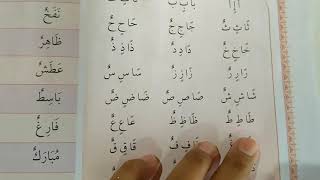 ثَاثِ ثٌ جَاجِ جٌ حَاحِ حٌ
خَاخِ خٌ دَادِ دٌ ذَاذِ ذٌ
رَارِ رٌ زَازِ زٌ سَاسِ سٌ
شَاشِ شٌ صَاصِ صٌ ضَاضِ ضٌ
طَاطِ طٌ ظَاظِ ظٌ عَاعِ عٌ
فَافِ فٌ قَاقِ قٌ
ظَاهِرٌ
عَطَشٌ
بَاسِطٌ
فَارِغٌ
مُبَارَكٌ